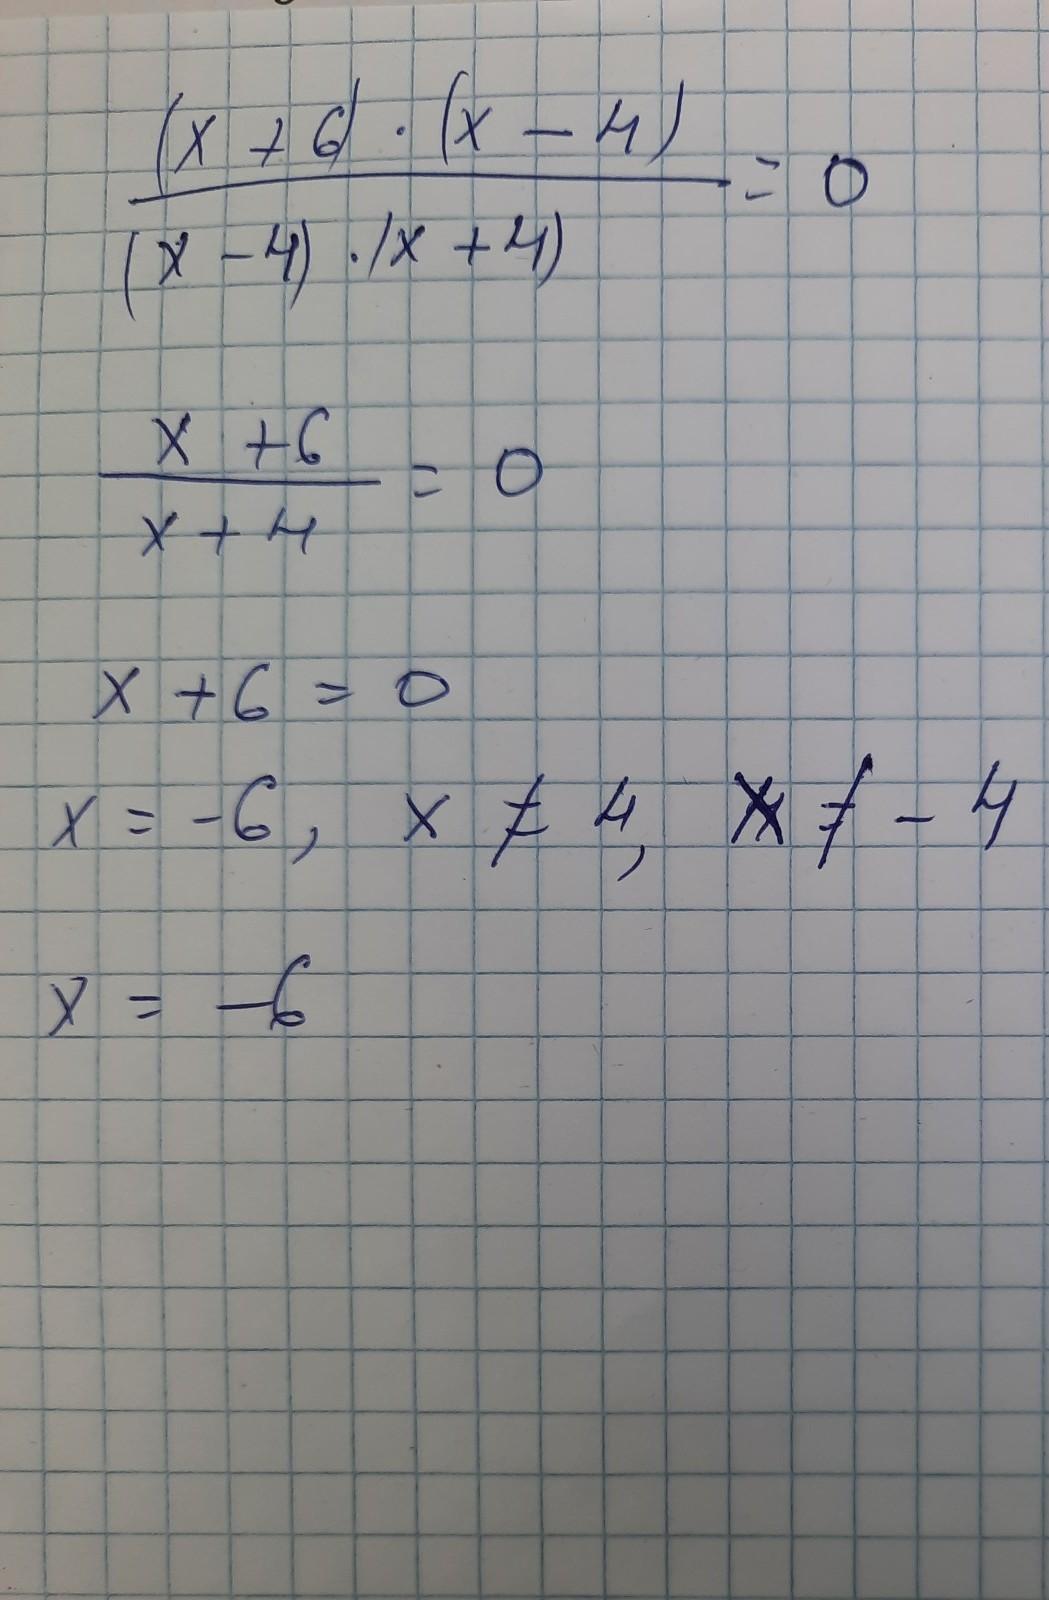 (x + 6) · (x - 4)
= 0
(x - 4) · (x + 4)
x + 6
= 0
x + 4
x + 6 = 0
x = -6, x ≠ 4, x ≠ -4
x = -6